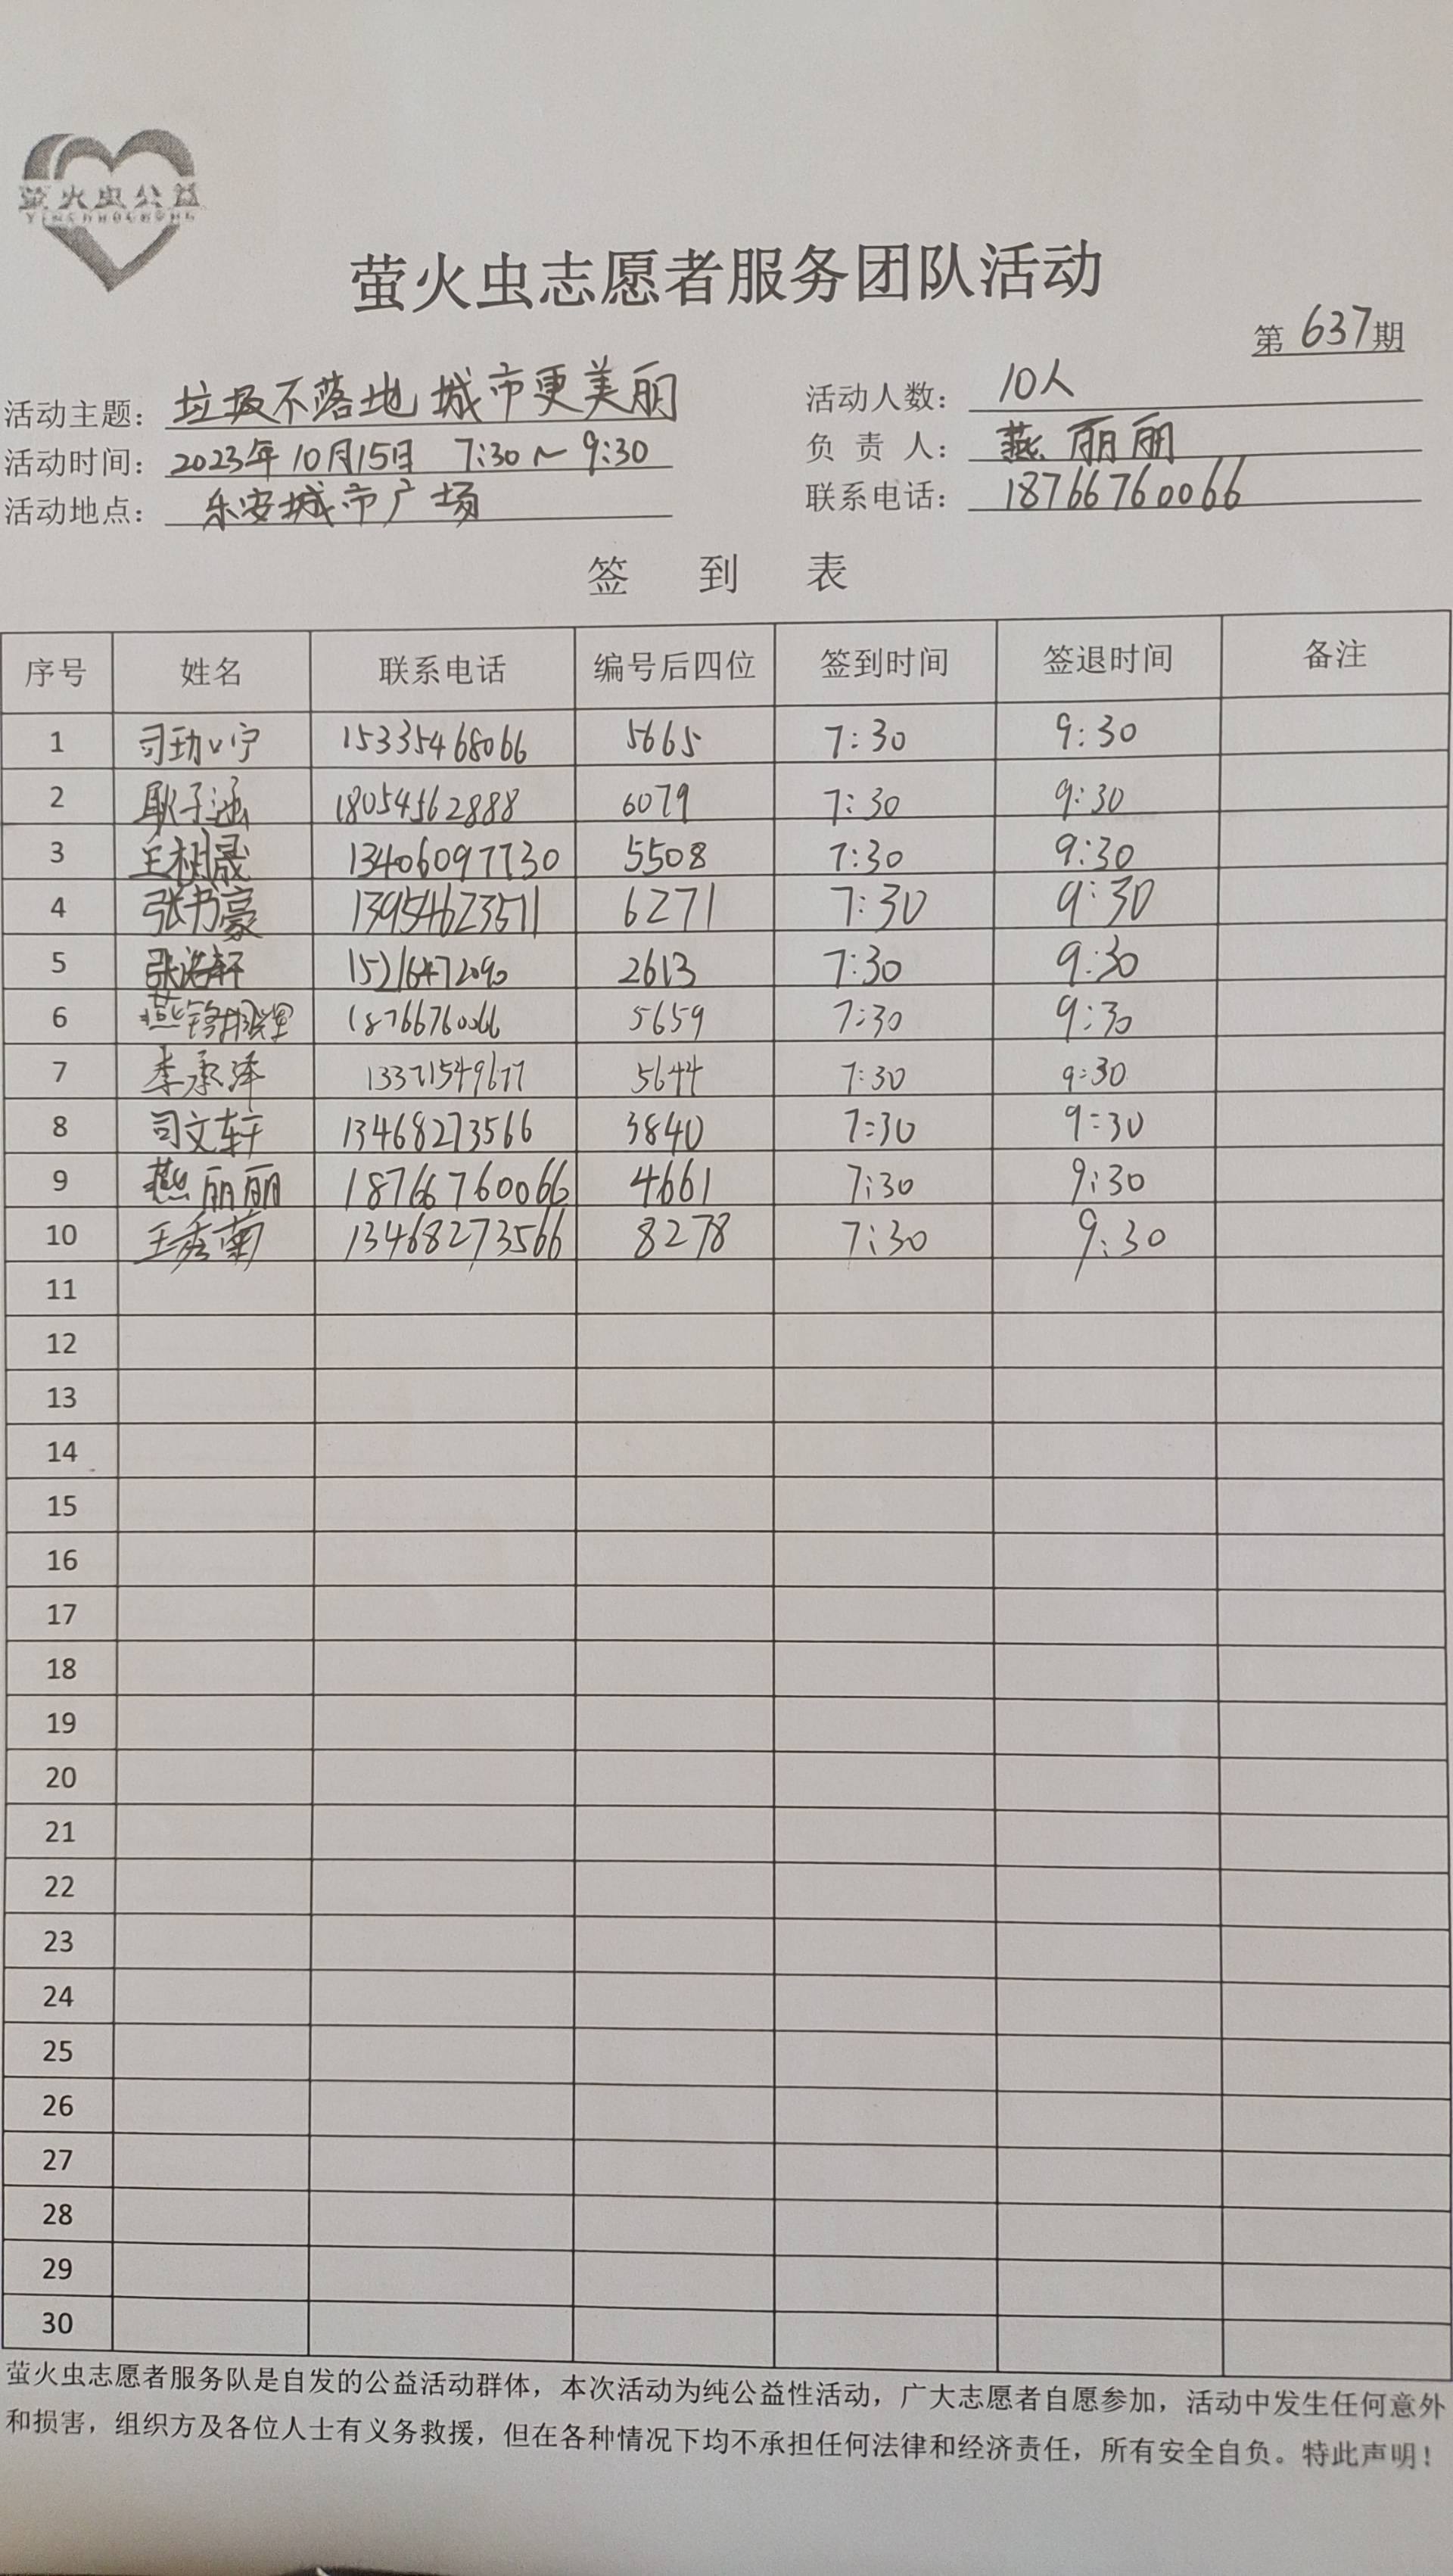 萤火虫公益
YINGHUOCHONG
萤火虫志愿者服务团队活动
第 637 期
活动主题： 垃圾不落地 城市更美丽 活动人数： 10人
活动时间： 2023年10月15日 7:30～9:30 负责人： 燕丽丽
活动地点： 乐安城市广场 联系电话： 18766760066
签 到 表
序号 姓名 联系电话 编号后四位 签到时间 签退时间 备注
1 15335468066 5665 7:30 9:30
2 耿子涵 18054562888 6079 7:30 9:30
3 王树晟 13406097730 5508 7:30 9:30
4 张书豪 13954623511 6271 7:30 9:30
5 15216472090 2613 7:30 9:30
6 18766760066 5659 7:30 9:30
7 李承泽 5644 7:30 9:30
8 司文轩 13468273566 3840 7:30 9:30
9 燕丽丽 18766760066 4661 7:30 9:30
10 王秀菊 13468273566 8278 7:30 9:30
11
12
13
14
15
16
17
18
19
20
21
22
23
24
25
26
27
28
29
30
萤火虫志愿者服务队是自发的公益活动群体，本次活动为纯公益性活动，广大志愿者自愿参加，活动中发生任何意外
和损害，组织方及各位人士有义务救援，但在各种情况下均不承担任何法律和经济责任，所有安全自负。特此声明！